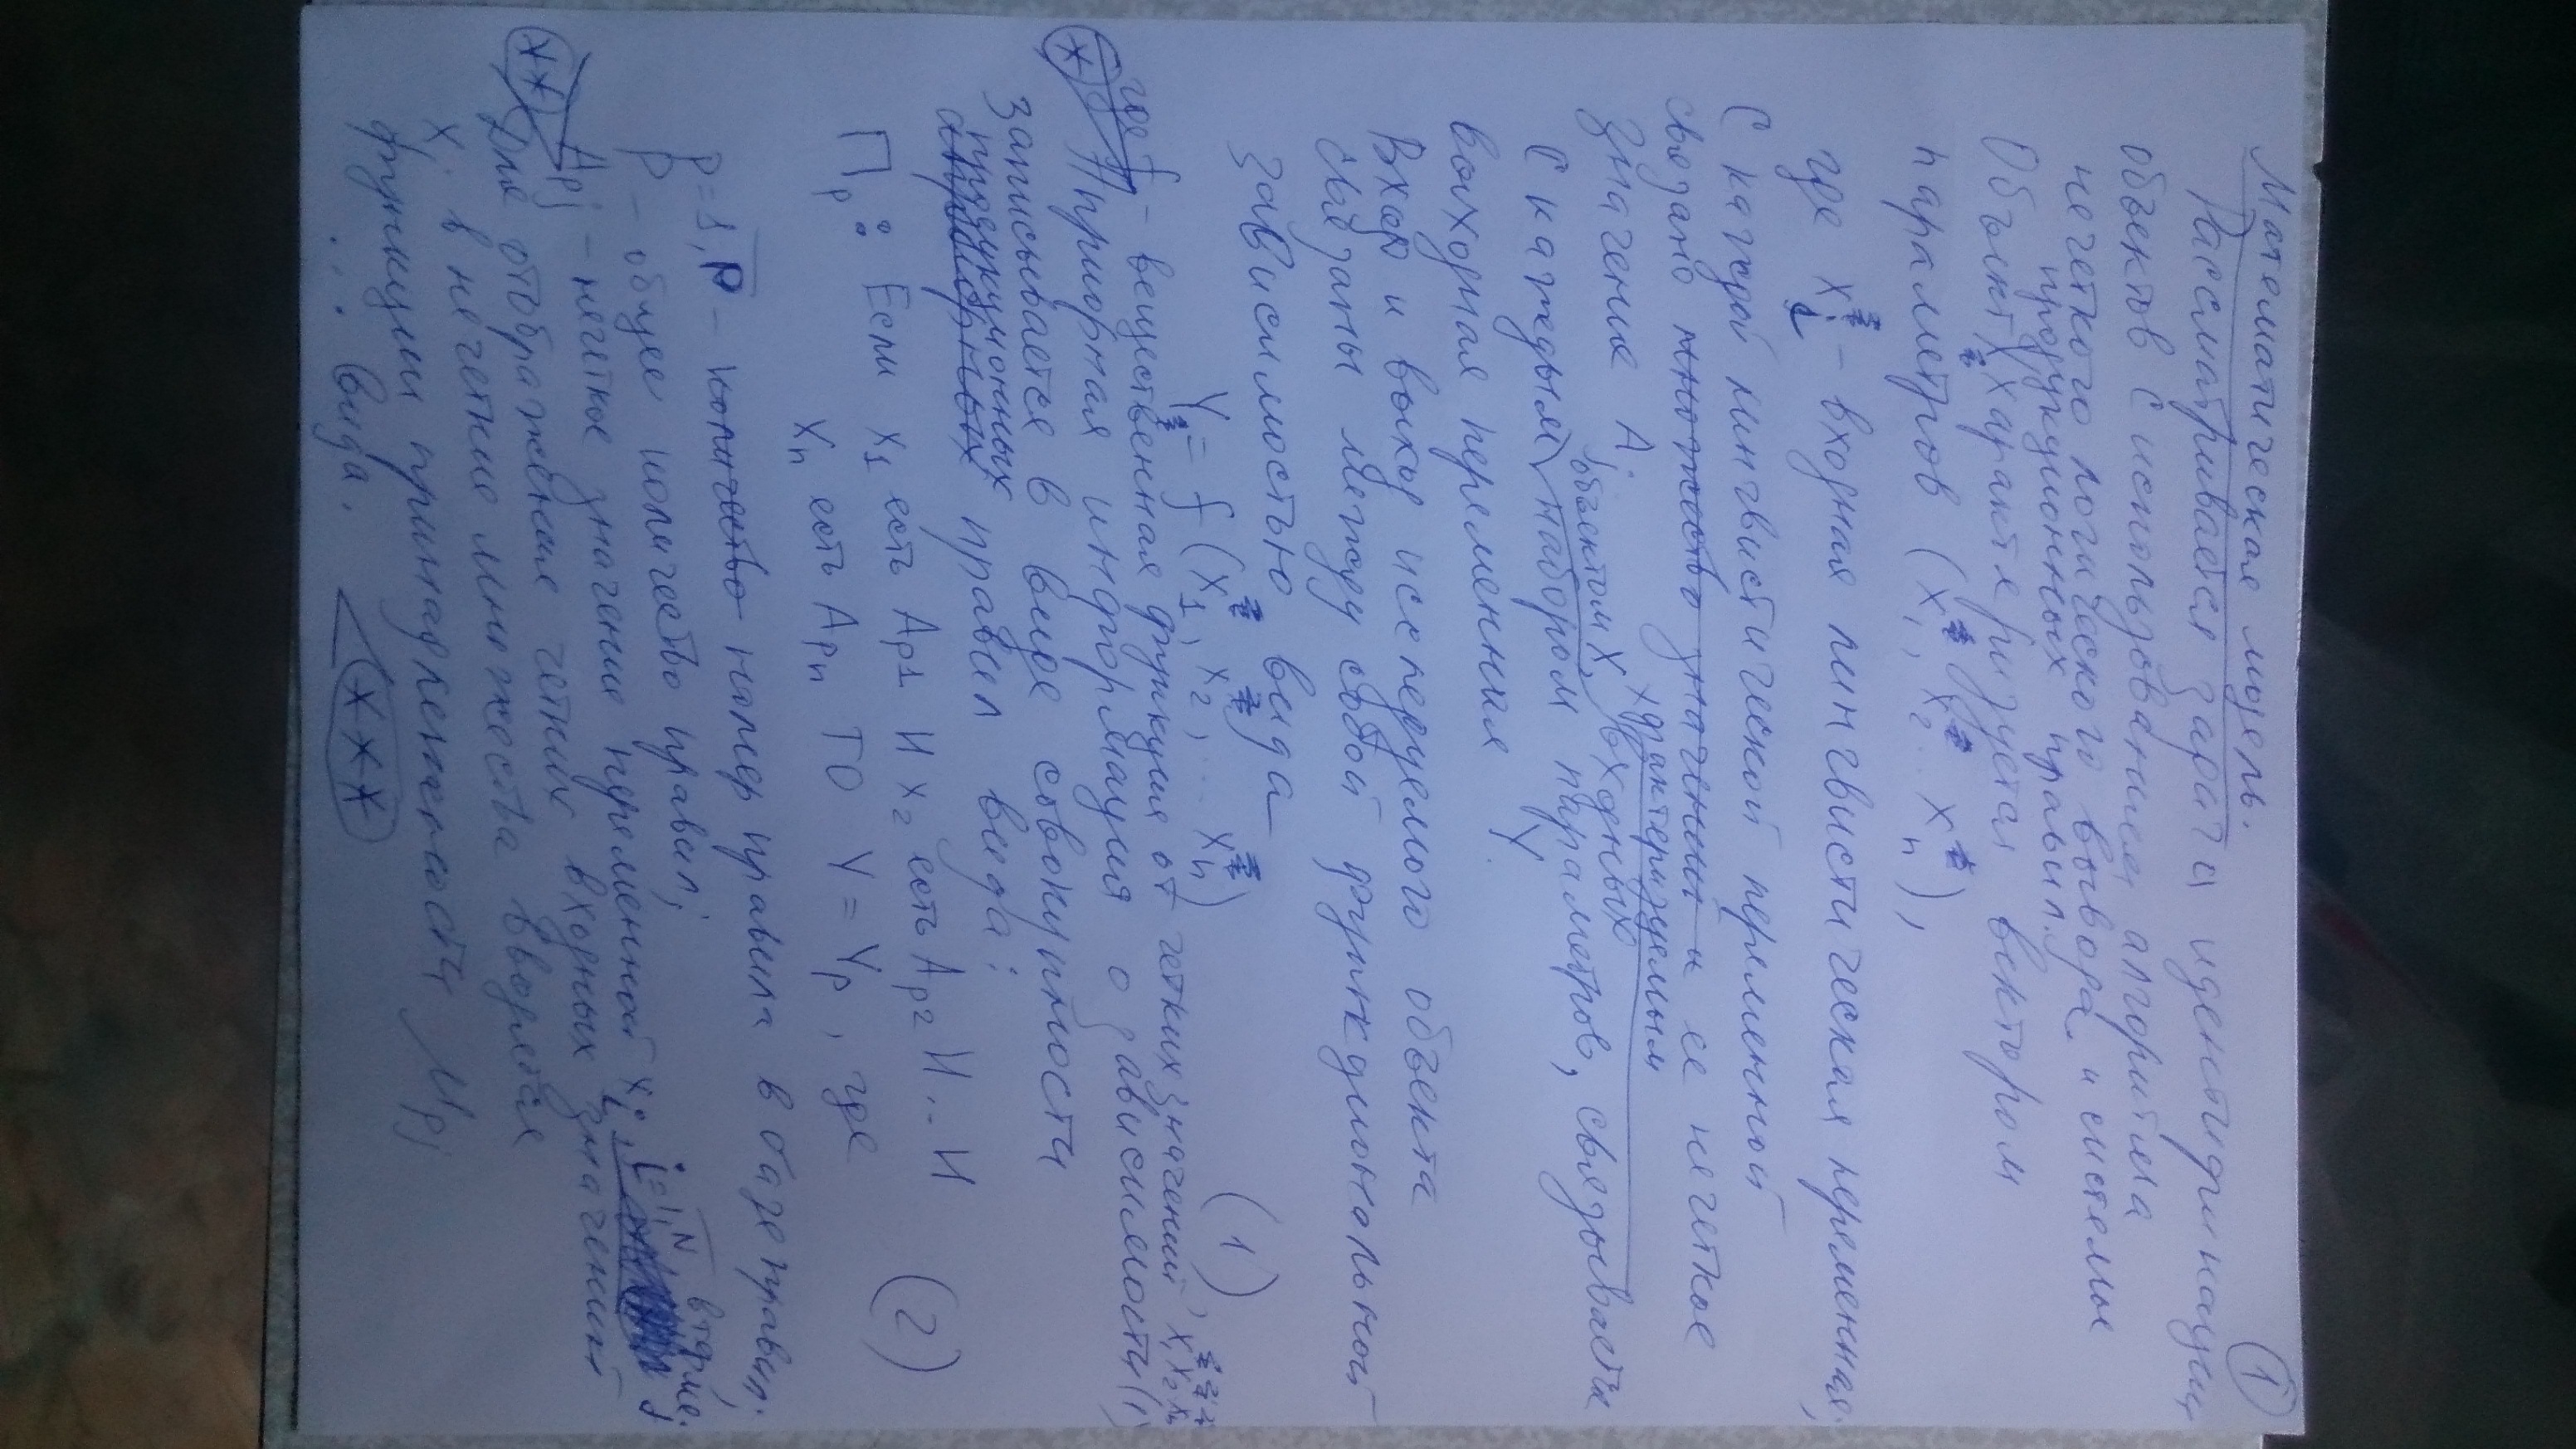 1
Математическая модель.
Рассматривается задача идентификации
объектов с использованием алгоритма
нечеткого логического вывода и системы
продукционных правил.
Объект X характеризуется вектором
параметров (x₁, x₂... xₙ),
где xᵢ - входная лингвистическая переменная,
С каждой лингвистической переменной
связано множество значений и ее нечеткое
значение Aⱼ
характеризуемым
объектом X,
С каждым набором входных параметров, связывается
выходная переменная Y.
Вход и выход исследуемого объекта
связаны между собой функциональной
зависимостью вида
Y = f (x₁, x₂, ... xₙ) (1)
где f - вещественная функция от четких значений, x₁ x₂ xₙ
* Априорная информация о зависимости (1)
записывается в виде совокупности
продукционных правил вида:
Пₚ: Если x₁ есть Aₚ₁ И x₂ есть Aₚ₂ И... И (2)
xₙ есть Aₚₙ ТО Y = Yₚ, где
p = 1,P - номер правила в базе правил;
P - общее количество правил;
i=1,N
** Aₚⱼ - нечеткое значение переменной xᵢ
Для отображения четких входных значений
xᵢ в нечеткие множества вводятся
функции принадлежности μₚⱼ
... вида. ***